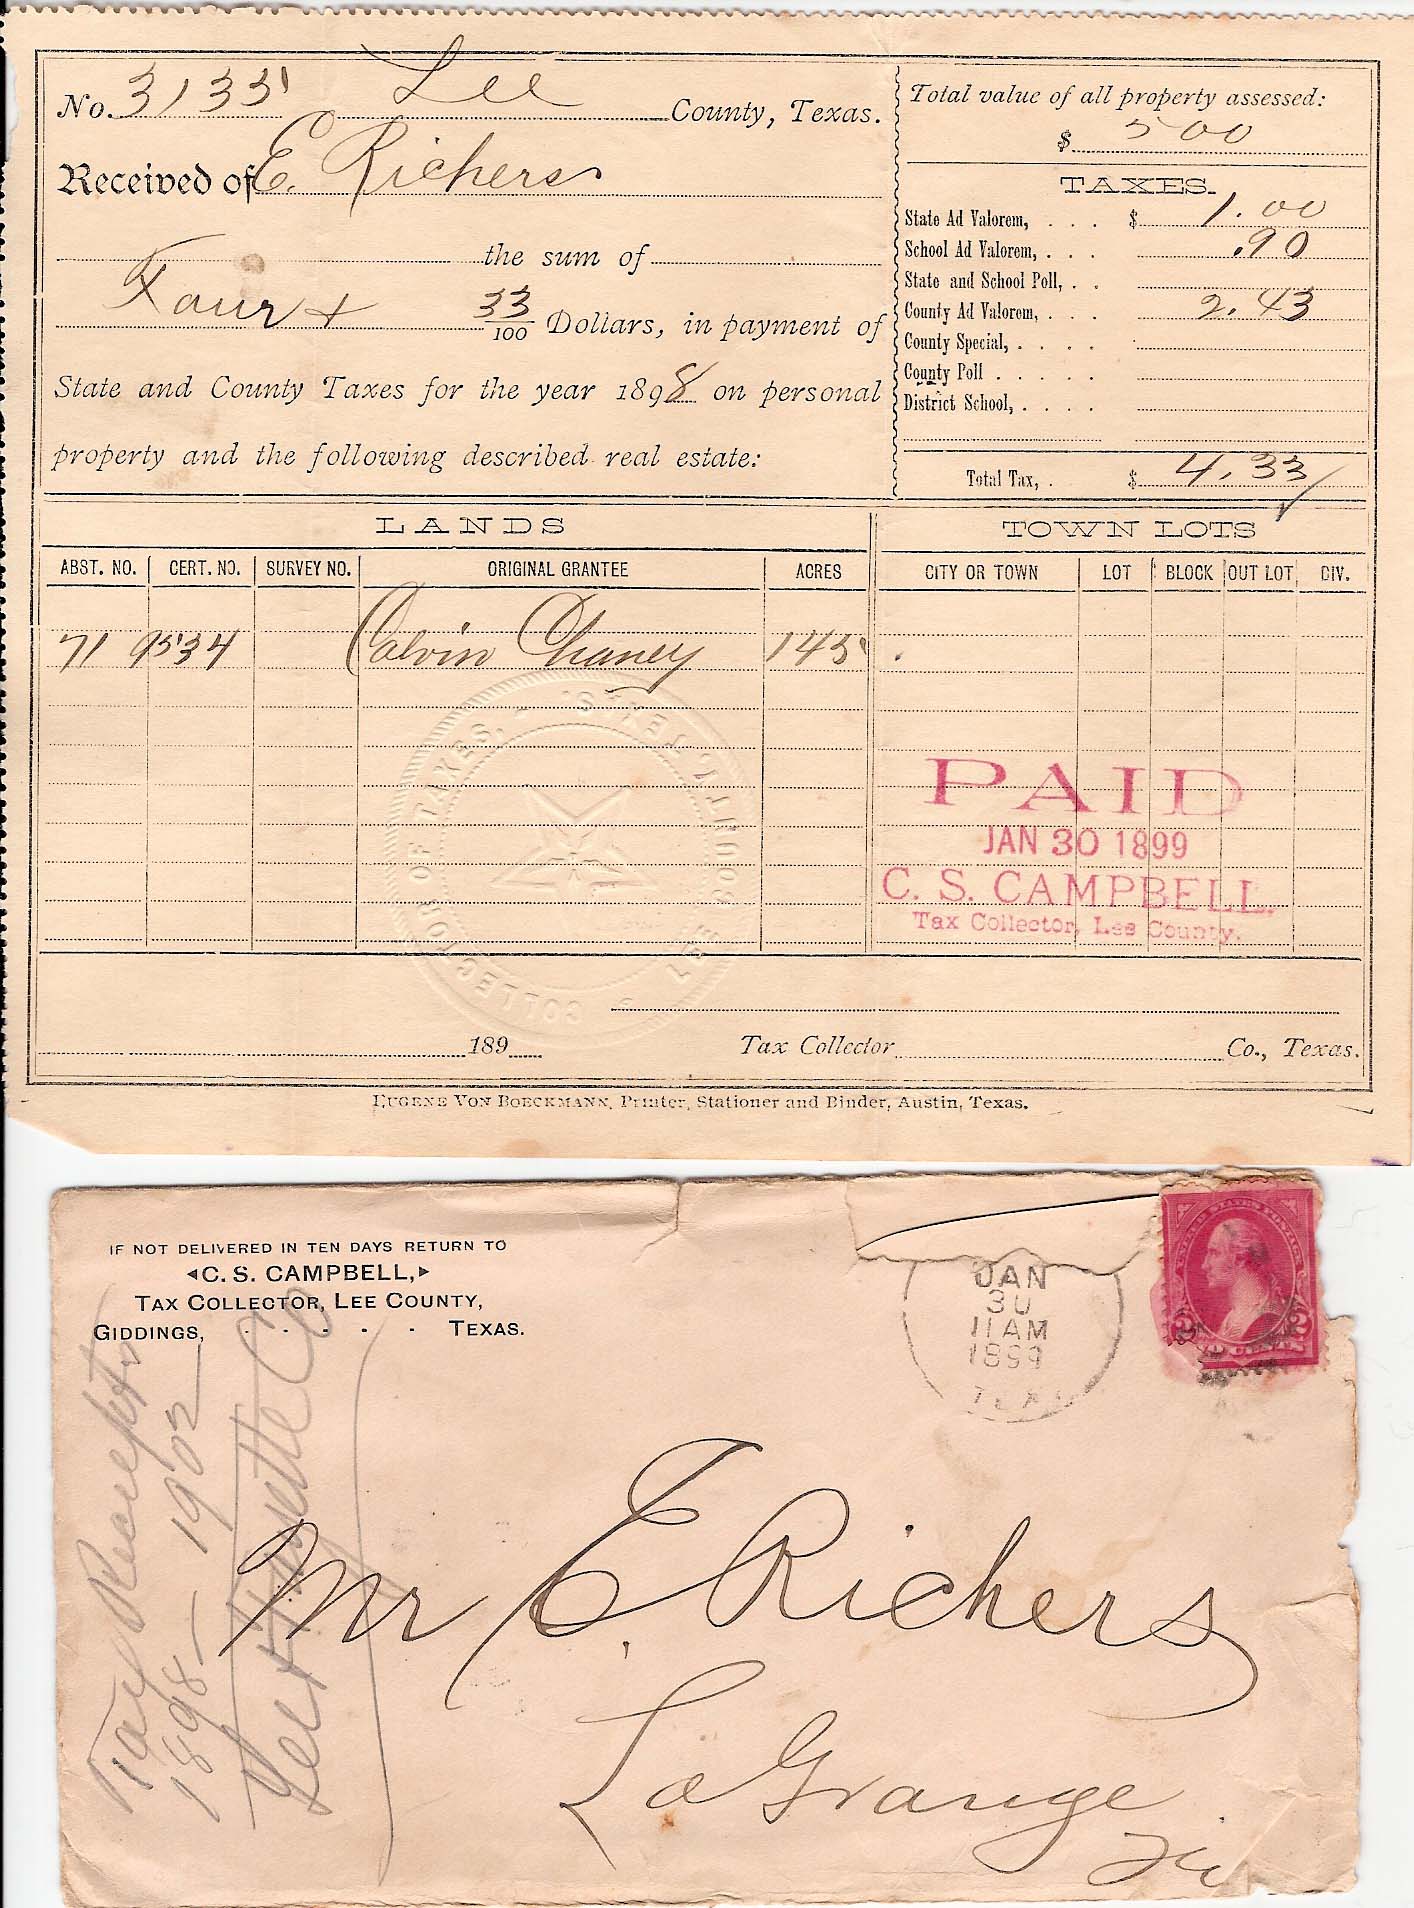 No. 3135 Lee County, Texas.
Received of E. Richers
the sum of
Four + 33/100 Dollars, in payment of
State and County Taxes for the year 1898 on personal
property and the following described real estate:
Total value of all property assessed:
$ 500
TAXES.
State Ad Valorem, . . . $ 1.00
School Ad Valorem, . . . .90
State and School Poll, . .
County Ad Valorem, . . . 2.43
County Special, . . . .
County Poll . . . . .
District School, . . . .
Total Tax, . $ 4.33
LANDS
ABST. NO. CERT. NO. SURVEY NO. ORIGINAL GRANTEE ACRES
71 9534 Calvin Chaney 145
TOWN LOTS
CITY OR TOWN LOT BLOCK OUT LOT DIV.
COLLECTOR OF TAXES, LEE COUNTY TEXAS.
PAID
JAN 30 1899
C. S. CAMPBELL.
Tax Collector, Lee County.
189 Tax Collector Co., Texas.
EUGENE VON BOECKMANN, Printer, Stationer and Binder, Austin, Texas.
IF NOT DELIVERED IN TEN DAYS RETURN TO
C. S. CAMPBELL,
TAX COLLECTOR, LEE COUNTY,
GIDDINGS, . . . . . TEXAS.
JAN
30
11 AM
1899
UNITED STATES POSTAGE
2 2
TWO CENTS
Tax Receipts
1898 – 1902
Lee + Fayette Co
Mr E. Richers
La Grange